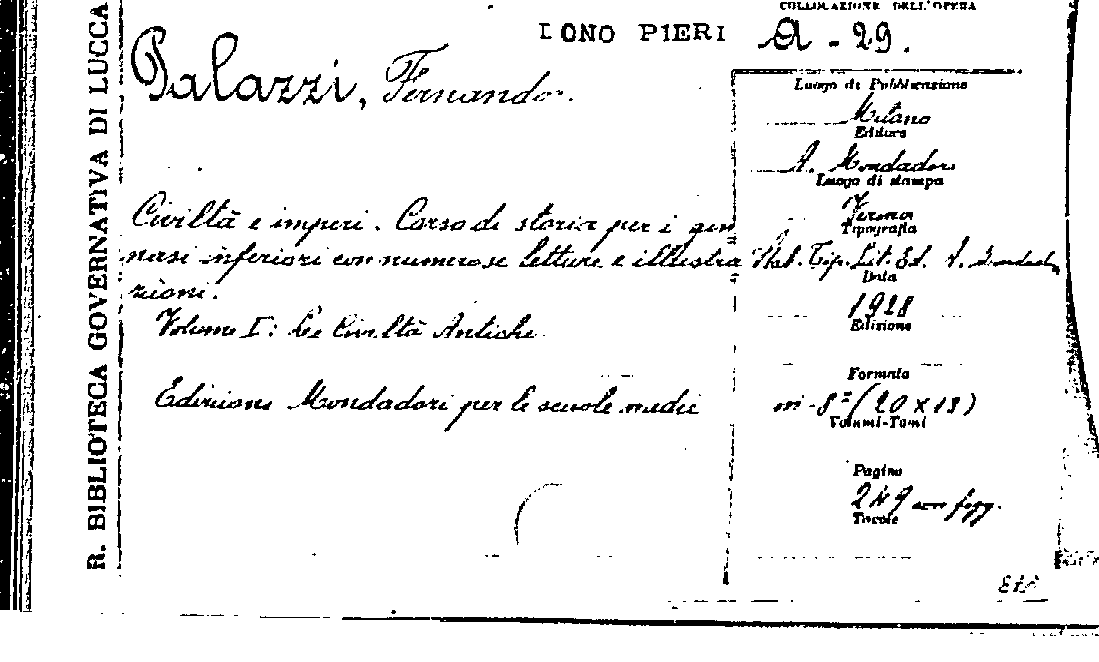 COLLOCAZIONE DELL'OPERA
DONO PIERI A - 29.
R. BIBLIOTECA GOVERNATIVA DI LUCCA
Palazzi, Fernando.
Civiltà e imperi. Corso di storia per i gin
nasi inferiori con numerose letture e illustra
zioni.
Volume I: Le Civiltà Antiche
Edizione Mondadori per le scuole medie
Luogo di Pubblicazione
Milano
Editore
A. Mondadori
Luogo di stampa
Verona
Tipografia
Stab. Tip. Lit. Ed. A. Mondadori
Data
1928
Edizione
Formato
in-8° (20 x 13)
Volumi-Tomi
Pagine
249 con figg.
Tavole